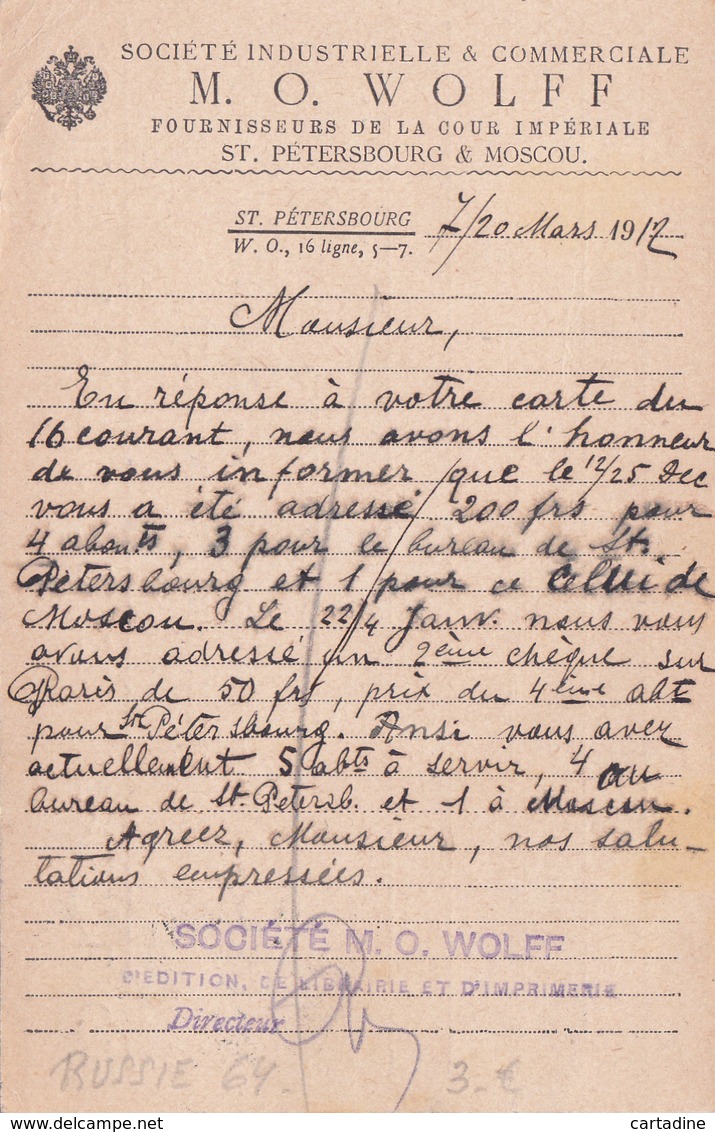 SOCIÉTÉ INDUSTRIELLE & COMMERCIALE
M. O. WOLFF
FOURNISSEURS DE LA COUR IMPÉRIALE
ST. PÉTERSBOURG & MOSCOU.
ST. PÉTERSBOURG 7/20 Mars 1912
W. O., 16 ligne, 5—7.
Monsieur,
En réponse à votre carte du
16 courant, nous avons l'honneur
de vous informer que le 12/25 Dec
vous a été adressé 200 frs pour
4 abonts, 3 pour le bureau de St.
Pétersbourg et 1 pour ce celui de
Moscou. Le 22/4 Janv. nous vous
avons adressé un 2ème chèque sur
Paris de 50 frs, prix du 4ème abt
pour St. Pétersbourg. Ansi vous avez
actuellement 5 abts à servir, 4 au
bureau de St. Petersb. et 1 à Moscou.
Agreez, Monsieur, nos salu-
tations empressées.
SOCIÉTÉ M. O. WOLFF
D'EDITION, DE LIBRAIRIE ET D'IMPRIMERIE
Directeur
RUSSIE 64. 3.-€
cartadine